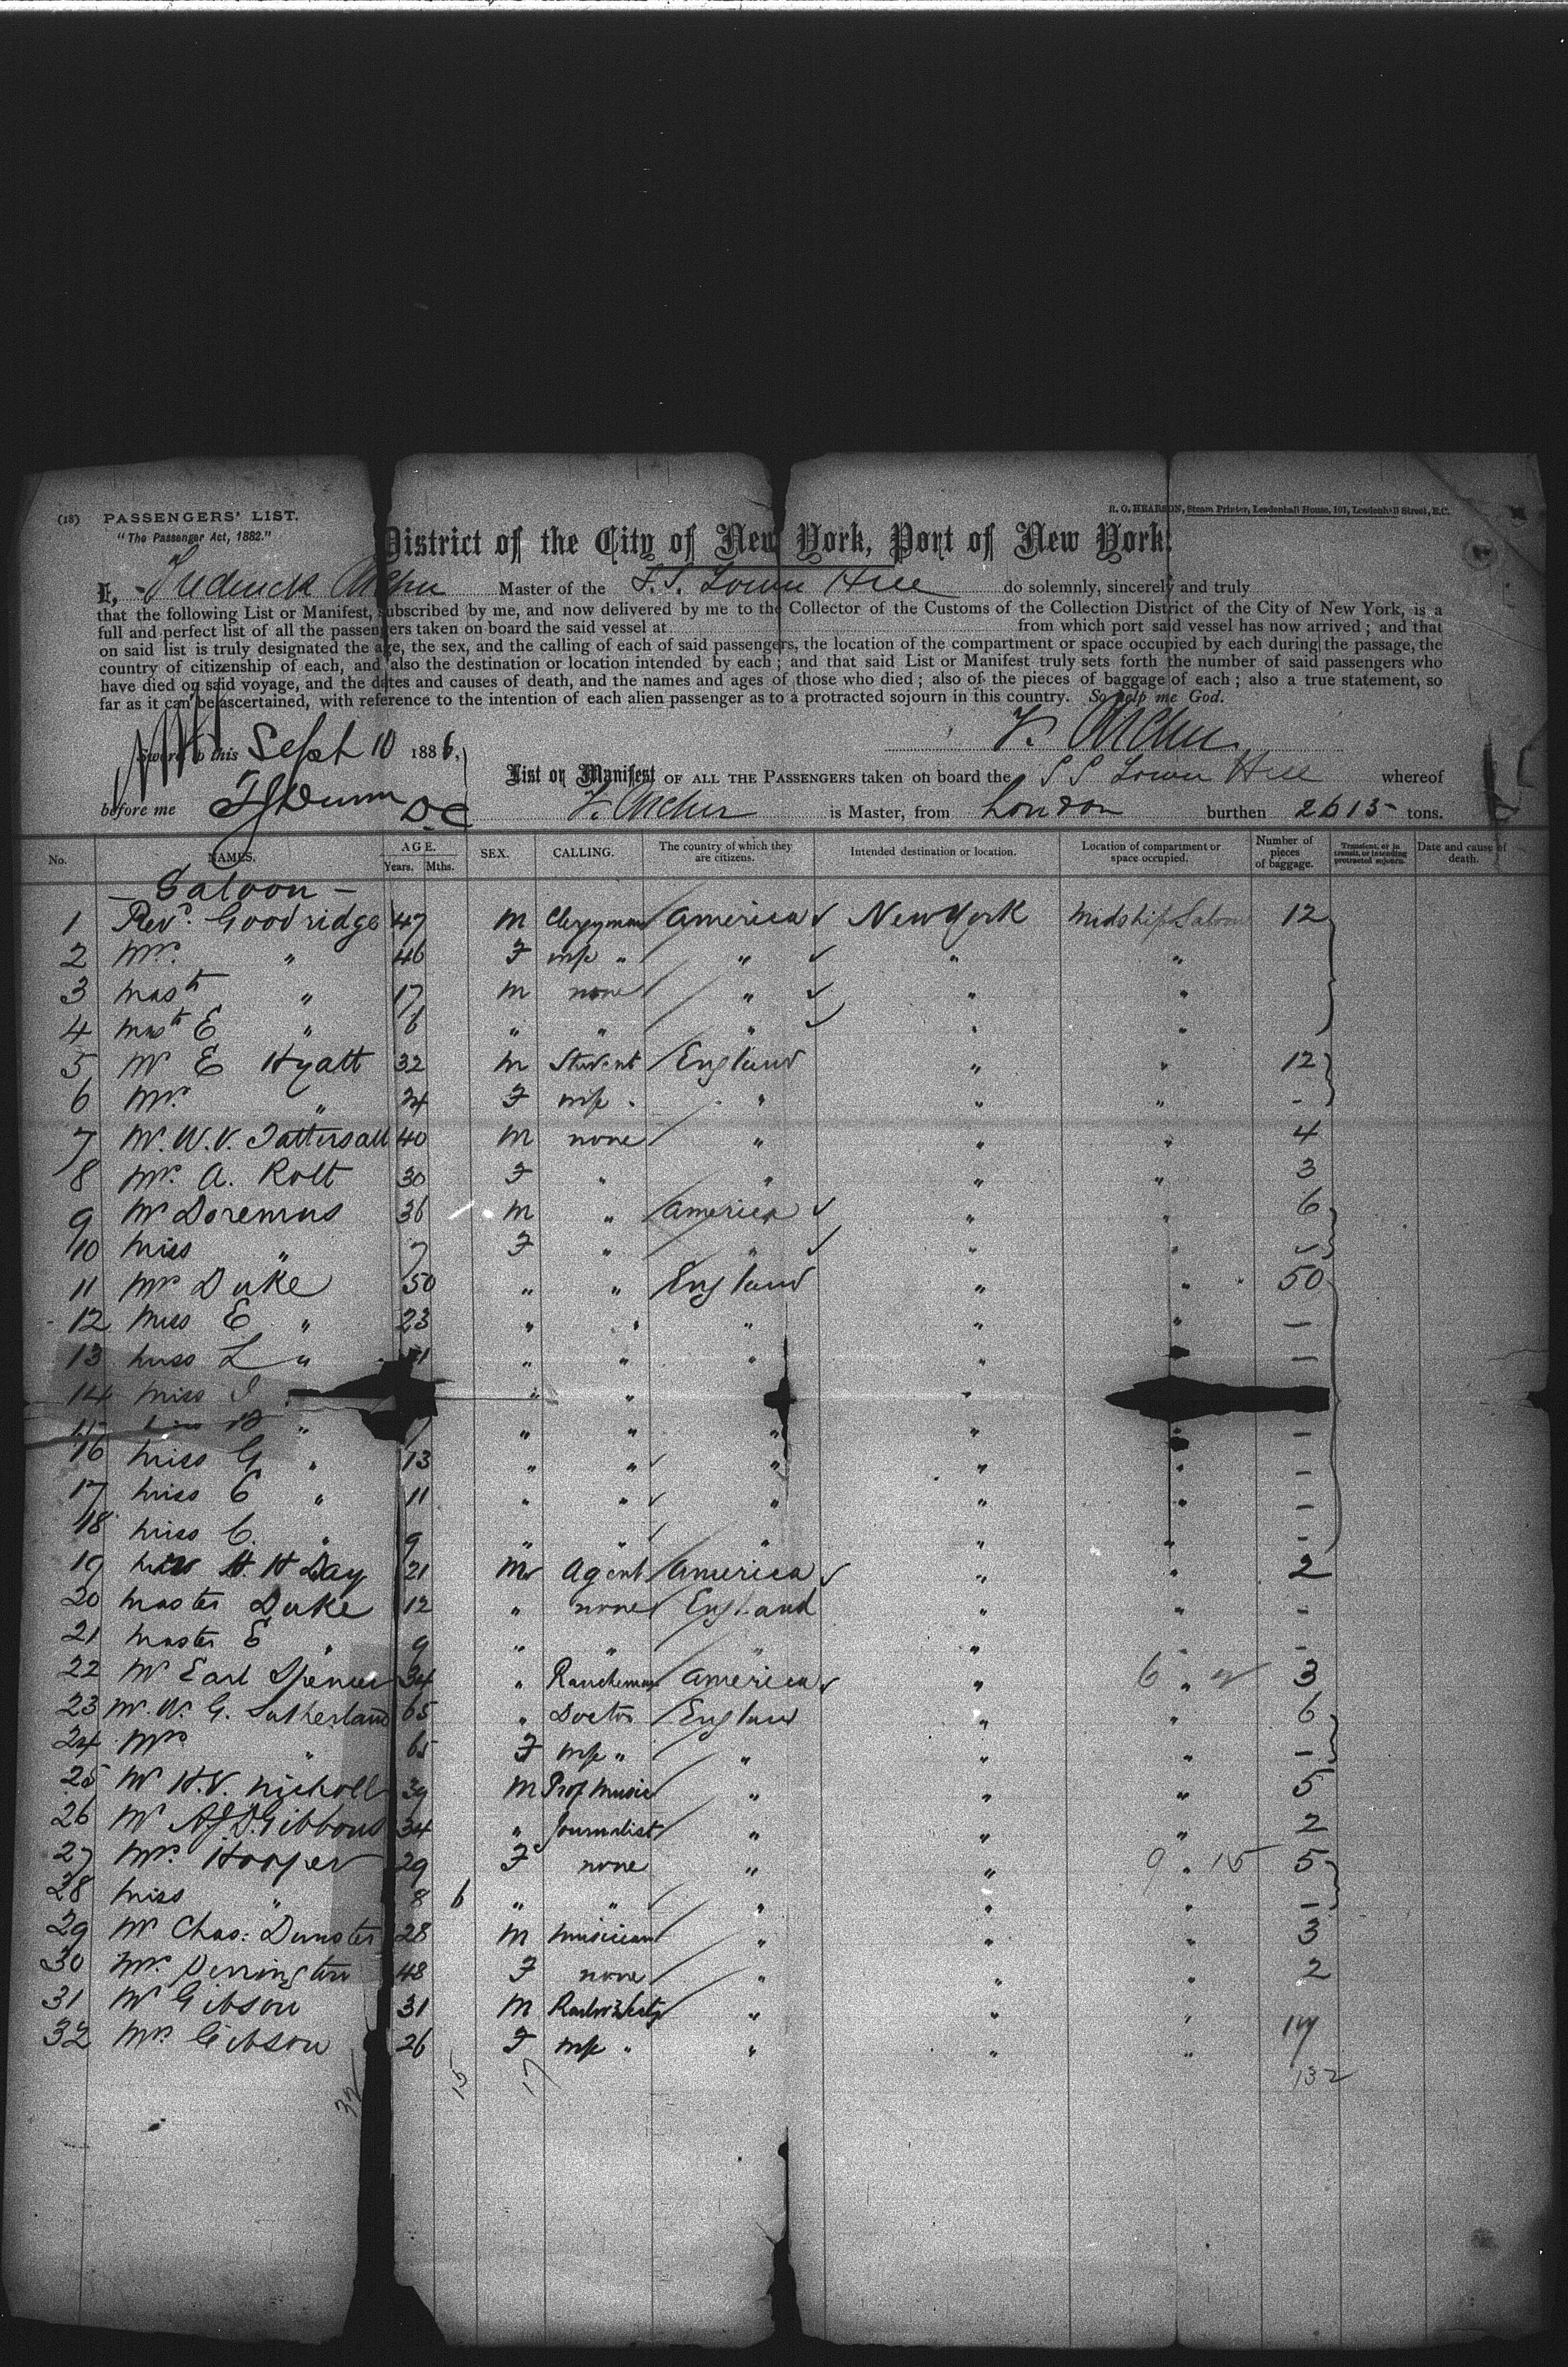 (18) PASSENGERS' LIST.
"The Passenger Act, 1882."
R. O. HEARSON, Steam Printer, Leadenhall House, 101, Leadenhall Street, E.C.
District of the City of New York, Port of New York.
I, Frederick Archer Master of the S.S. Tower Hill do solemnly, sincerely and truly
that the following List or Manifest, subscribed by me, and now delivered by me to the Collector of the Customs of the Collection District of the City of New York, is a
full and perfect list of all the passengers taken on board the said vessel at from which port said vessel has now arrived; and that
on said list is truly designated the age, the sex, and the calling of each of said passengers, the location of the compartment or space occupied by each during the passage, the
country of citizenship of each, and also the destination or location intended by each; and that said List or Manifest truly sets forth the number of said passengers who
have died on said voyage, and the dates and causes of death, and the names and ages of those who died; also of the pieces of baggage of each; also a true statement, so
far as it can be ascertained, with reference to the intention of each alien passenger as to a protracted sojourn in this country. So help me God.
F. Archer
Sworn to this Sept 10 1886,
List or Manifest OF ALL THE PASSENGERS taken on board the S S Tower Hill whereof
before me D.C. F. Archer is Master, from London burthen 2615 tons.
No. NAMES. AGE. Years. Mths. SEX. CALLING. The country of which they are citizens. Intended destination or location. Location of compartment or space occupied. Number of pieces of baggage. Transient, or in transit, or intending protracted sojourn. Date and cause of death.
Saloon
1 Revd. Goodridge 47 M Clergyman America New York Midship Saloon 12
2 Mrs. " 46 F wife " " " "
3 Mastr " 17 M none " " "
4 Mastr E " 6 " " " " "
5 Mr E Hyatt 32 M Student England " " 12
6 Mrs. " 24 F wife " " " " -
7 Mr. W. V. Tattersall 40 M none " " " 4
8 Mrs. A. Rolt 30 F " " " " 3
9 Mr Doremus 36 M " America " " 6
10 Miss " 7 F " " " "
11 Mrs Duke 50 " " England " " 50
12 Miss E " 23 " " " " " -
13 Miss L " " " " " " -
14 Miss " " "
15 " " " " " " -
16 Miss G " 13 " " " " " -
17 Miss E " 11 " " " " " -
18 Miss C. " 9 " " " " " -
19 H. H Day 21 M Agent America " " 2
20 Master Duke 12 " none England " " -
21 Master E " 9 " " " " " -
22 Mr Earl Spencer 34 " Rancheman America " 6 " 3
23 Mr. W. G. Sutherland 65 " Doctor England " " 6
24 Mrs " 65 F wife " " " " -
25 Mr H. V. Nicholl 39 M Prof Music " " " 5
26 Mr Gibbons 34 " Journalist " " " 2
27 Mrs. Hooper 29 F none " " 9 " 15 5
28 Miss " 8 6 " " " " " -
29 Mr Chas: Dunster 28 M Musician " " " 3
30 Mrs. Perrington 48 F none " " " 2
31 Mr Gibson 31 M " " "
32 Mrs. Gibson 26 F wife " " " " 14
32 15 17 132